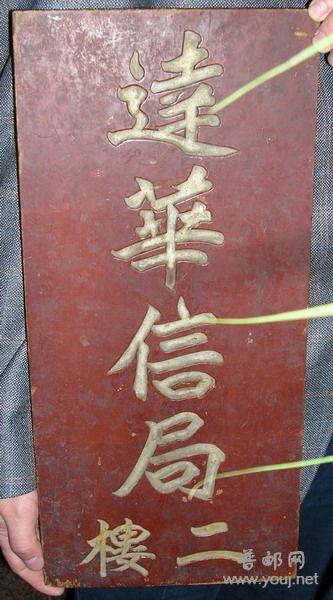 達華信局
二樓
普邮网
www.youj.net